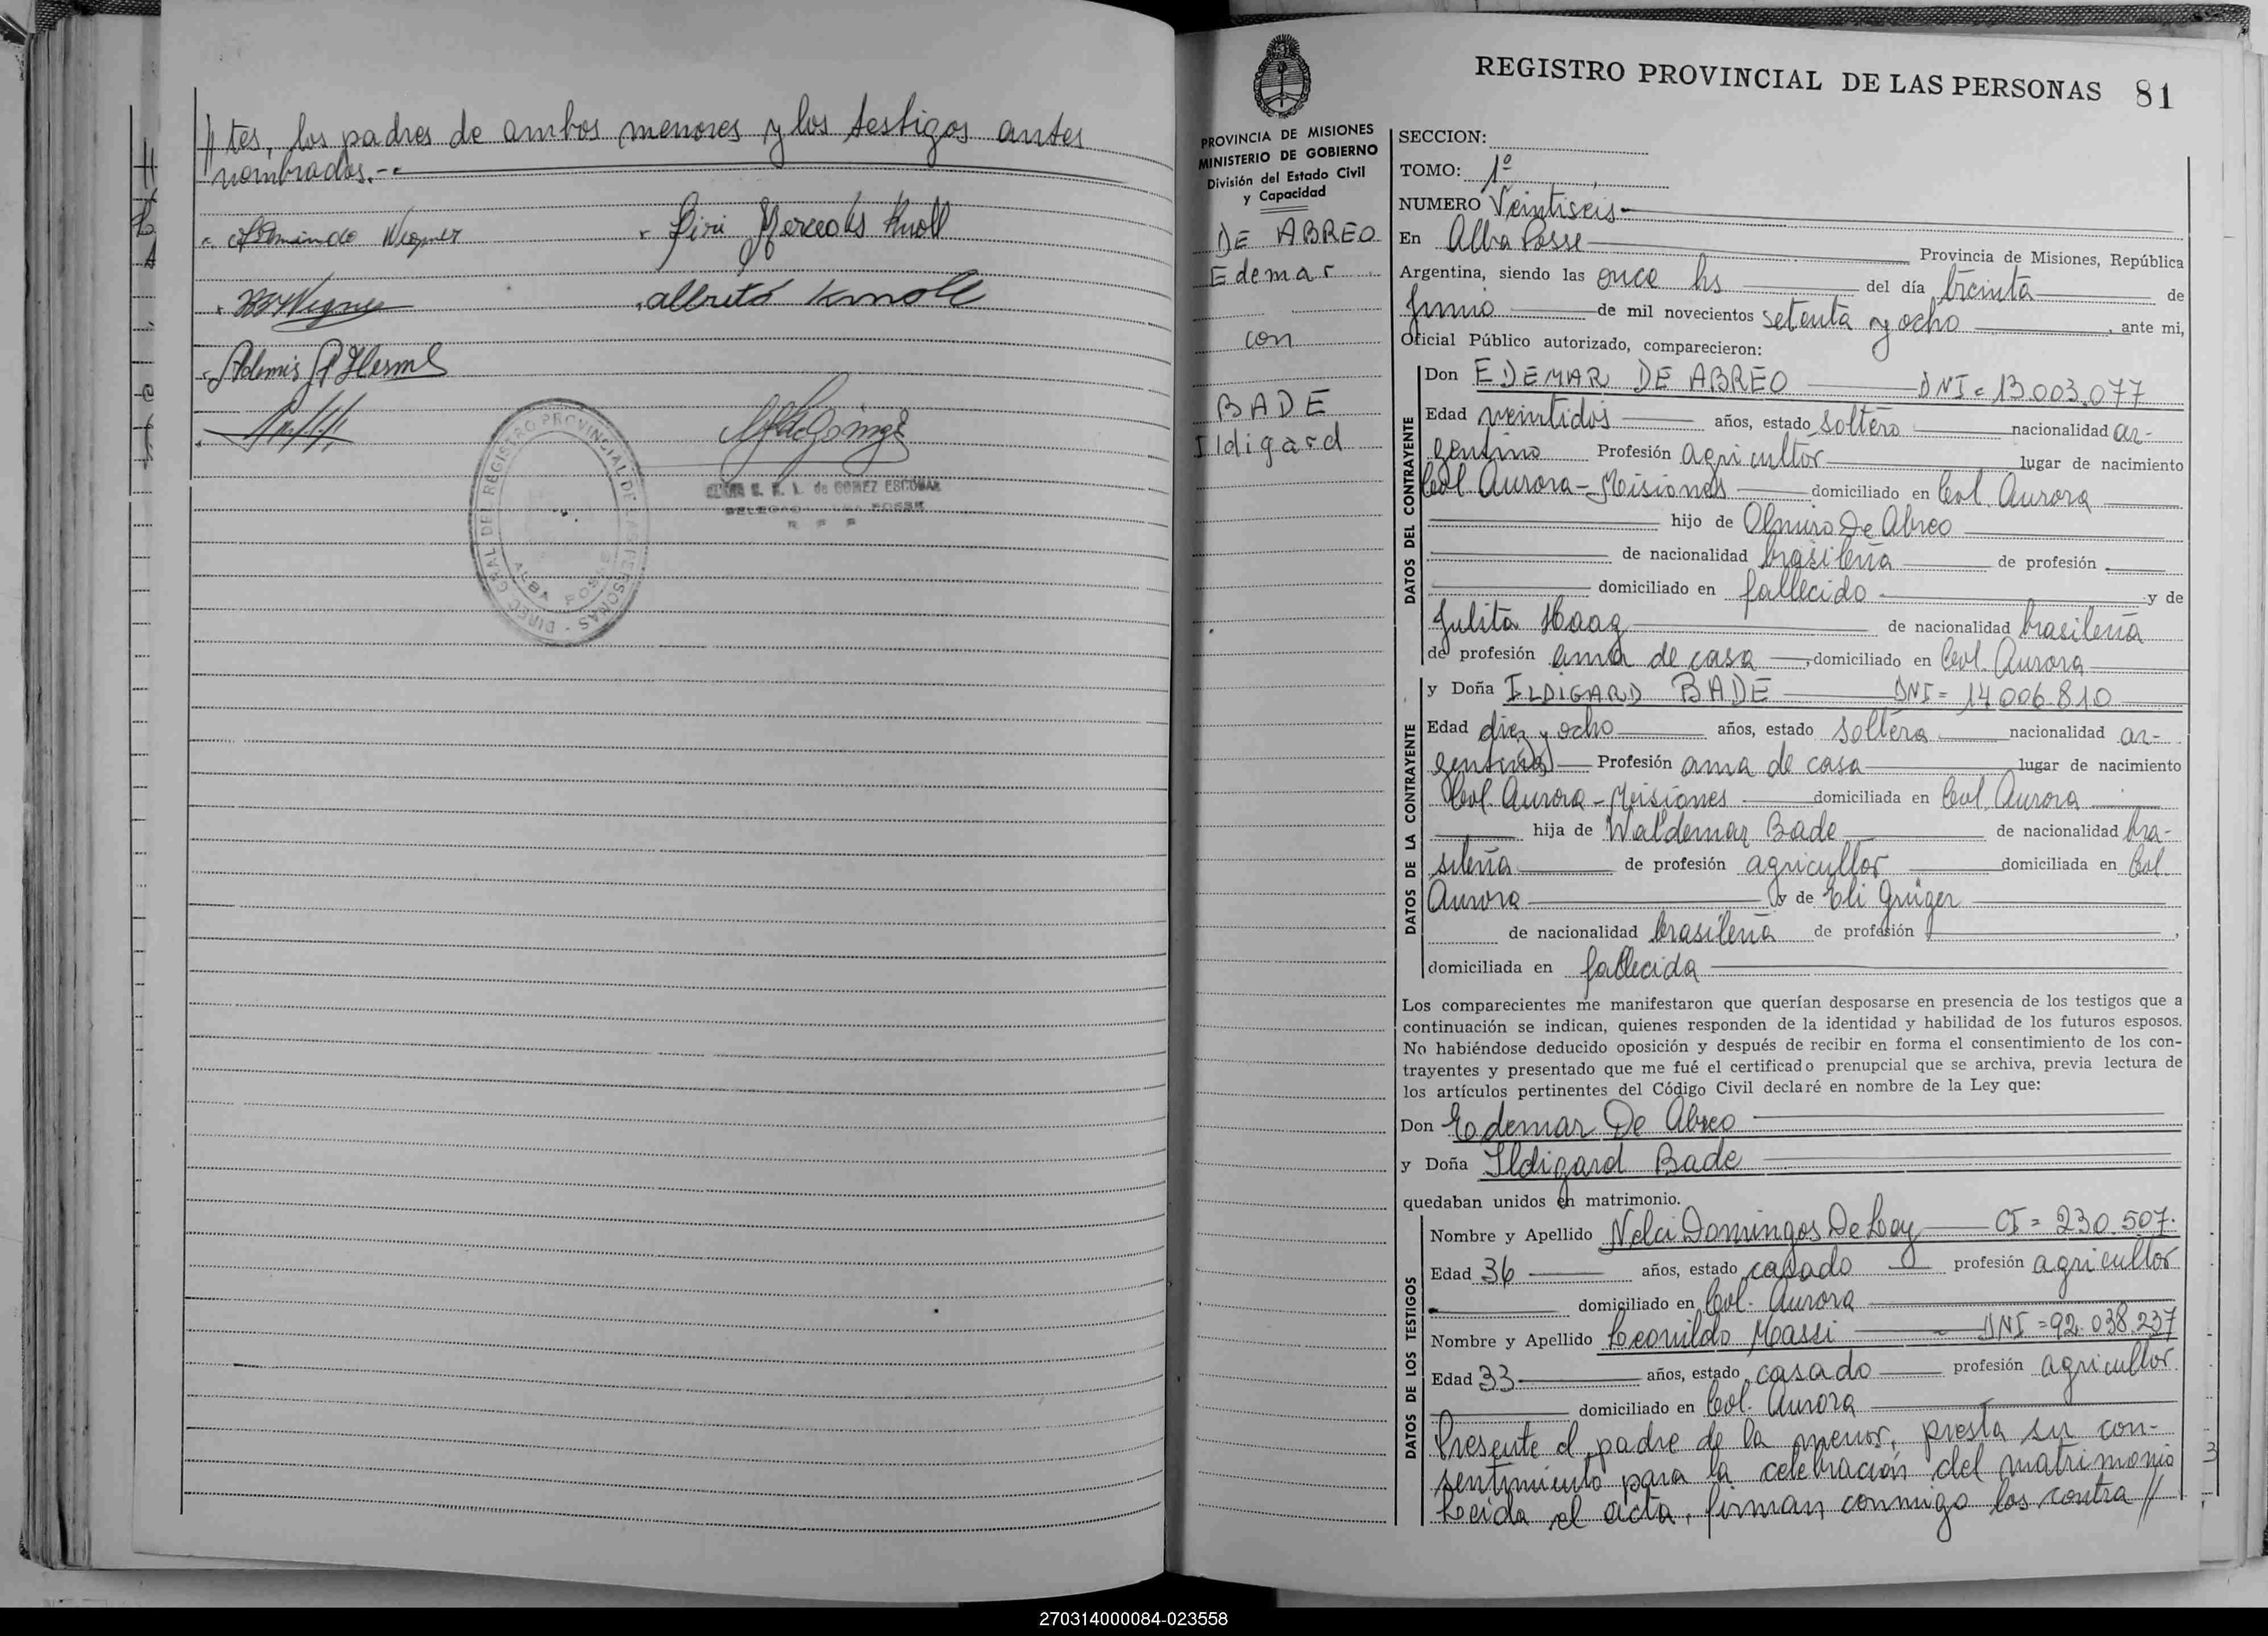 // tes, los padres de ambos menores y los testigos antes
nombrados.-
Alberto Knoll
DIREC. GRAL. DEL REGISTRO PROVINCIAL DE LAS PERSONAS -
ALBA POSSE
de GOMEZ ESCOBAR
REGISTRO PROVINCIAL DE LAS PERSONAS 81
PROVINCIA DE MISIONES
MINISTERIO DE GOBIERNO
División del Estado Civil
y Capacidad
DE ABREO
Edemar
con
BADE
Ildigard
SECCION:
TOMO: 1º
NUMERO Veintiseis
En Alba Posse Provincia de Misiones, República
Argentina, siendo las once hs del día treinta de
Junio de mil novecientos setenta y ocho, ante mi,
Oficial Público autorizado, comparecieron:
DATOS DEL CONTRAYENTE
Don EDEMAR DE ABREO DNI = 13.003.077
Edad veintidos años, estado soltero nacionalidad ar-
gentino Profesión agricultor lugar de nacimiento
Col. Aurora - Misiones domiciliado en Col. Aurora
hijo de Olmiro De Abreo
de nacionalidad brasileña de profesión
domiciliado en fallecido y de
Julita Haag de nacionalidad brasileña
de profesión ama de casa, domiciliado en Col. Aurora
DATOS DE LA CONTRAYENTE
y Doña ILDIGARD BADE DNI = 14.006.810
Edad diez y ocho años, estado soltera nacionalidad ar-
gentina Profesión ama de casa lugar de nacimiento
Col. Aurora - Misiones domiciliada en Col. Aurora
hija de Waldemar Bade de nacionalidad bra-
sileña de profesión agricultor domiciliada en Col.
Aurora y de Eli Grüger
de nacionalidad brasileña de profesión ,
domiciliada en fallecida
Los comparecientes me manifestaron que querían desposarse en presencia de los testigos que a
continuación se indican, quienes responden de la identidad y habilidad de los futuros esposos.
No habiéndose deducido oposición y después de recibir en forma el consentimiento de los con-
trayentes y presentado que me fué el certificado prenupcial que se archiva, previa lectura de
los artículos pertinentes del Código Civil declaré en nombre de la Ley que:
Don Edemar De Abreo
y Doña Ildigard Bade
quedaban unidos en matrimonio.
DATOS DE LOS TESTIGOS
Nombre y Apellido Nelci Domingos De Loy CI = 230.507.
Edad 36 años, estado casado profesión agricultor
domiciliado en Col. Aurora
Nombre y Apellido Leonildo Massi DNI = 92.038.237
Edad 33 años, estado casado profesión agricultor
domiciliado en Col. Aurora
Presente el padre de la menor, presta su con-
sentimiento para la celebración del matrimonio
Leida el acta, firman conmigo los contra //
270314000084-023558